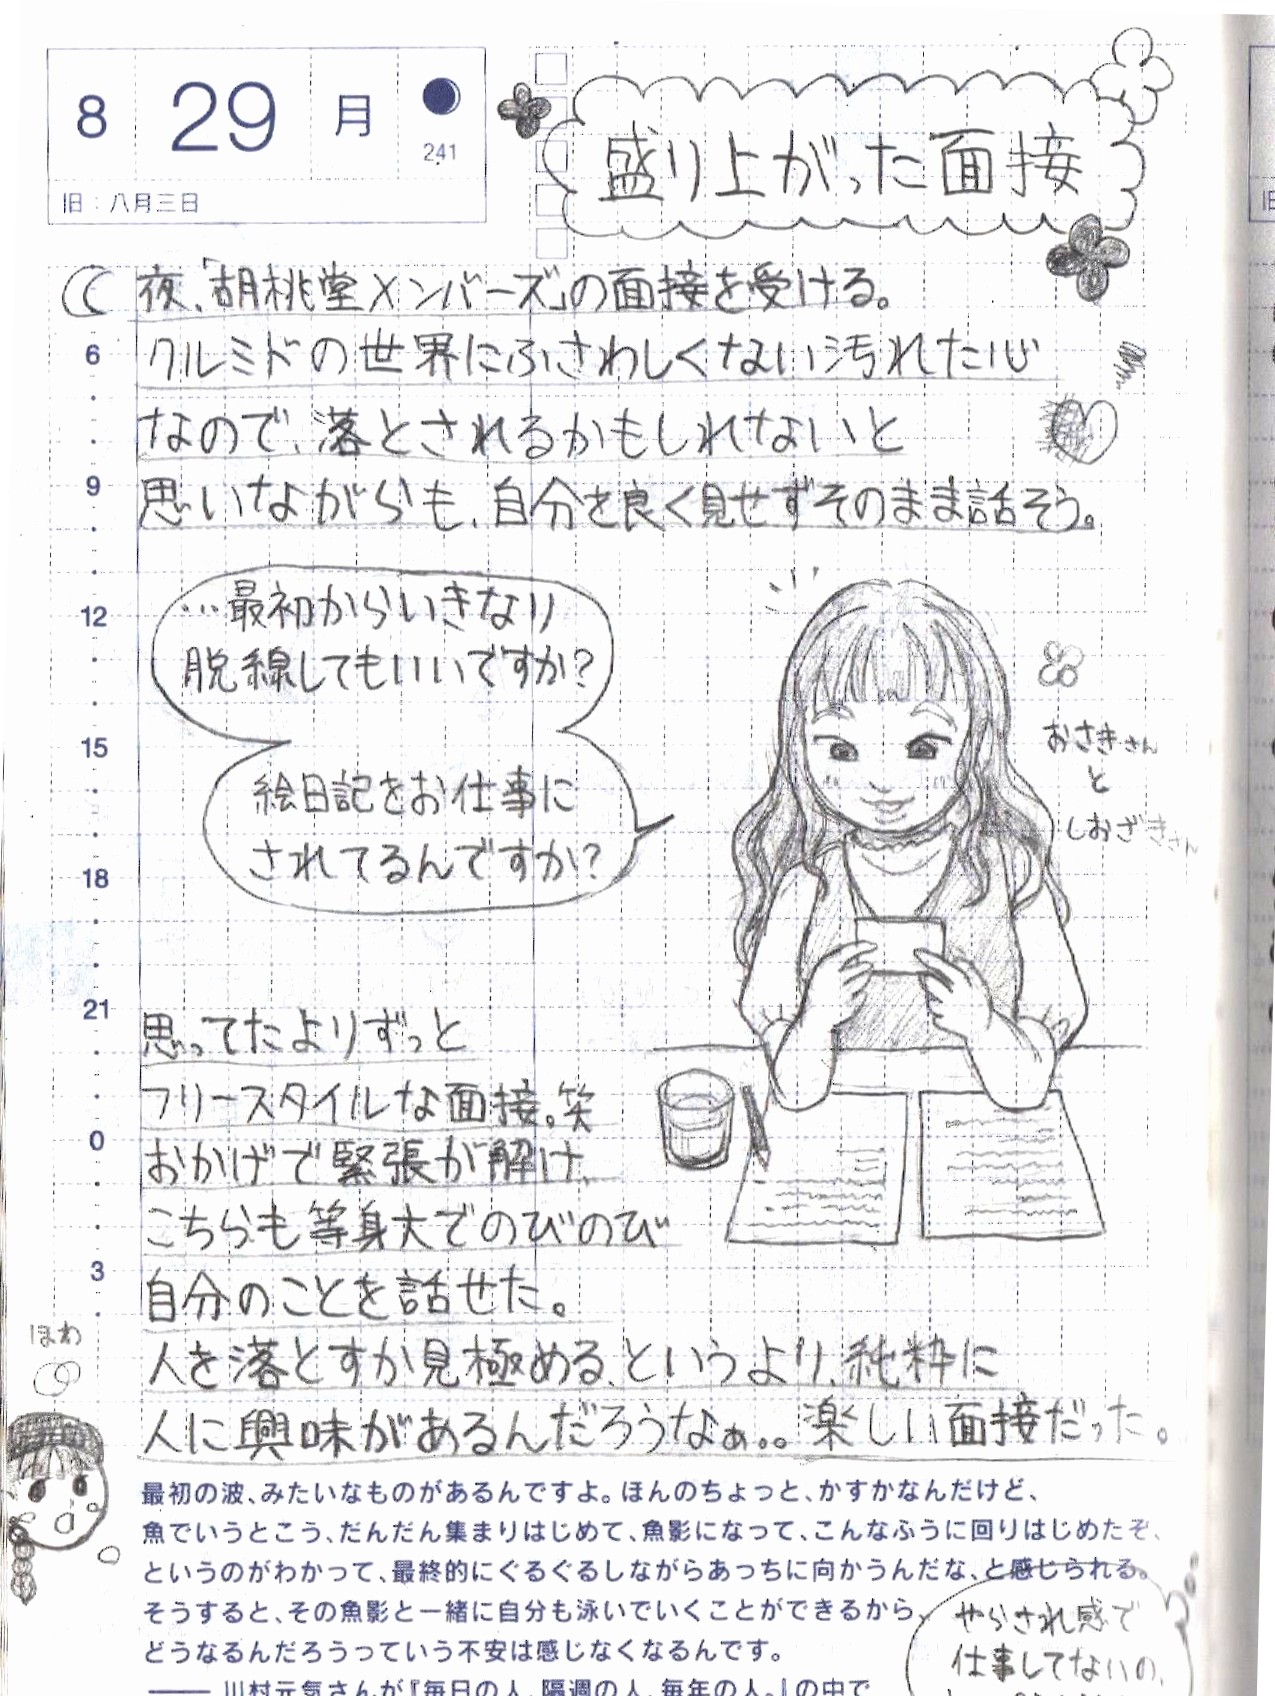 8 29 月
241
旧：八月三日
盛り上がった面接
夜、「胡桃堂メンバーズ」の面接を受ける。
クルミドの世界にふさわしくない汚れた心
なので、落とされるかもしれないと
思いながらも、自分を良く見せずそのまま話そう。
6
9
12
15
18
21
0
3
…最初からいきなり
脱線してもいいですか？
絵日記をお仕事に
されてるんですか？
おさきさん
と
しおざきさん
思ってたよりずっと
フリースタイルな面接。笑
おかげで緊張が解け、
こちらも等身大でのびのび
自分のことを話せた。
人を落とすか見極める、というより、純粋に
人に興味があるんだろうなぁ。。楽しい面接だった。
ほわ
最初の波、みたいなものがあるんですよ。ほんのちょっと、かすかなんだけど、
魚でいうとこう、だんだん集まりはじめて、魚影になって、こんなふうに回りはじめたぞ、
というのがわかって、最終的にぐるぐるしながらあっちに向かうんだな、と感じられる。
そうすると、その魚影と一緒に自分も泳いでいくことができるから、
どうなるんだろうっていう不安は感じなくなるんです。
—— 川村元気さんが『毎日の人、隔週の人、毎年の人。』の中で
やらされ感で
仕事してないの、
旧